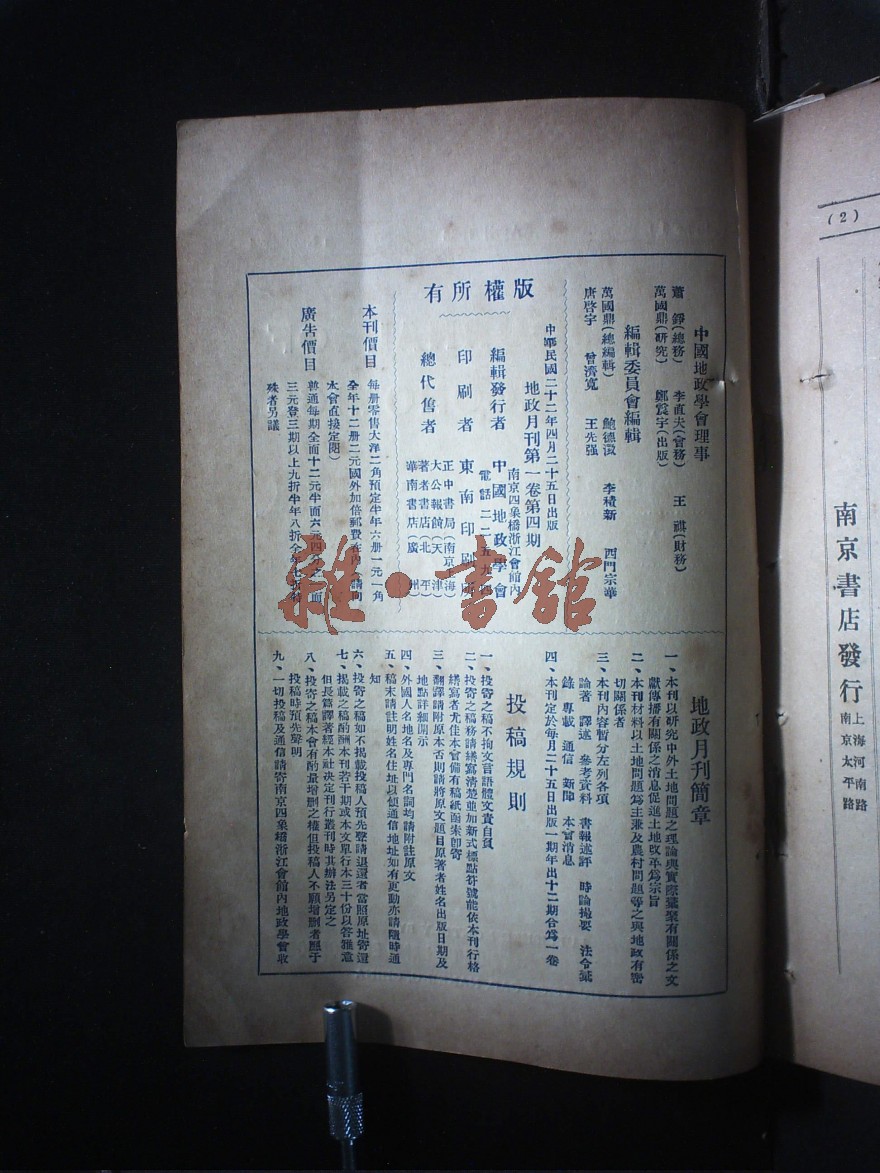 中國地政學會理事
蕭 錚(總務) 李直夫(會務) 王 祺(財務)
萬國鼎(研究) 鄭震宇(出版)
編輯委員會編輯
萬國鼎(總編輯) 鮑德澂 李積新 西門宗華
唐啓宇 曾濟寬 王先强
中華民國二十二年四月二十五日出版
地政月刊第一卷第四期
版權所有
編輯發行者 中國地政學會
南京四象橋浙江會館內
電話二二五九四
印刷者 東南印刷所
總代售者
正中書局(南京
大公報館(天津
著者書店(北平)
華南書店(廣州)
本刊價目
每册零售大洋二角預定半年六册一元一角
全年十二册二元國外加倍郵費在內(請向
本會直接定閱)
廣告價目
普通每期全面十二元半面六元四分之一面
三元登三期以上九折半年八折全年七折特
殊者另議
地政月刊簡章
一、本刊以研究中外土地問題之理論與實際彙聚有關係之文
獻傳播有關係之消息促進土地改革爲宗旨
二、本刊材料以土地問題爲主兼及農村問題等之與地政有密
切關係者
三、本刊內容暫分左列各項
論著 譯述 參考資料 書報述評 時論撮要 法令彙
錄 專載 通信 新聞 本會消息
四、本刊定於每月二十五日出版一期年出十二期合爲一卷
投稿規則
一、投寄之稿不拘文言語體文責自負
二、投寄之稿務請繕寫清楚並加新式標點符號能依本刊行格
繕寫者尤佳本會備有稿紙函索即寄
三、翻譯請附原本否則請將原文題目原著者姓名出版日期及
地點詳細開示
四、外國人名地名及專門名詞均請附註原文
五、稿末請註明姓名住址以便通信地址如有更動亦請隨時通
知
六、投寄之稿如不揭載投稿人預先聲請退還者當照原址寄還
七、揭載之稿酌酬本刊若干期或本文單行本三十份以答雅意
但長篇譯著經本社決定刊行叢刊時其辦法另定之
八、投寄之稿本會有酌量增删之權但投稿人不願增删者應于
投稿時預先聲明
九、一切投稿及通信請寄南京四象橋浙江會館內地政學會收
雜·書館
(2)
南京書店發行
上海河南路
南京太平路